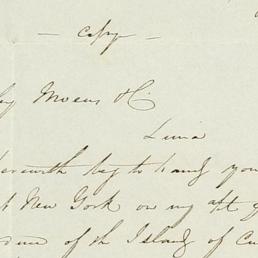 — copy —
Moens & C.
Lima
herewith beg to hand you
New York on my a/pt
of the Island of